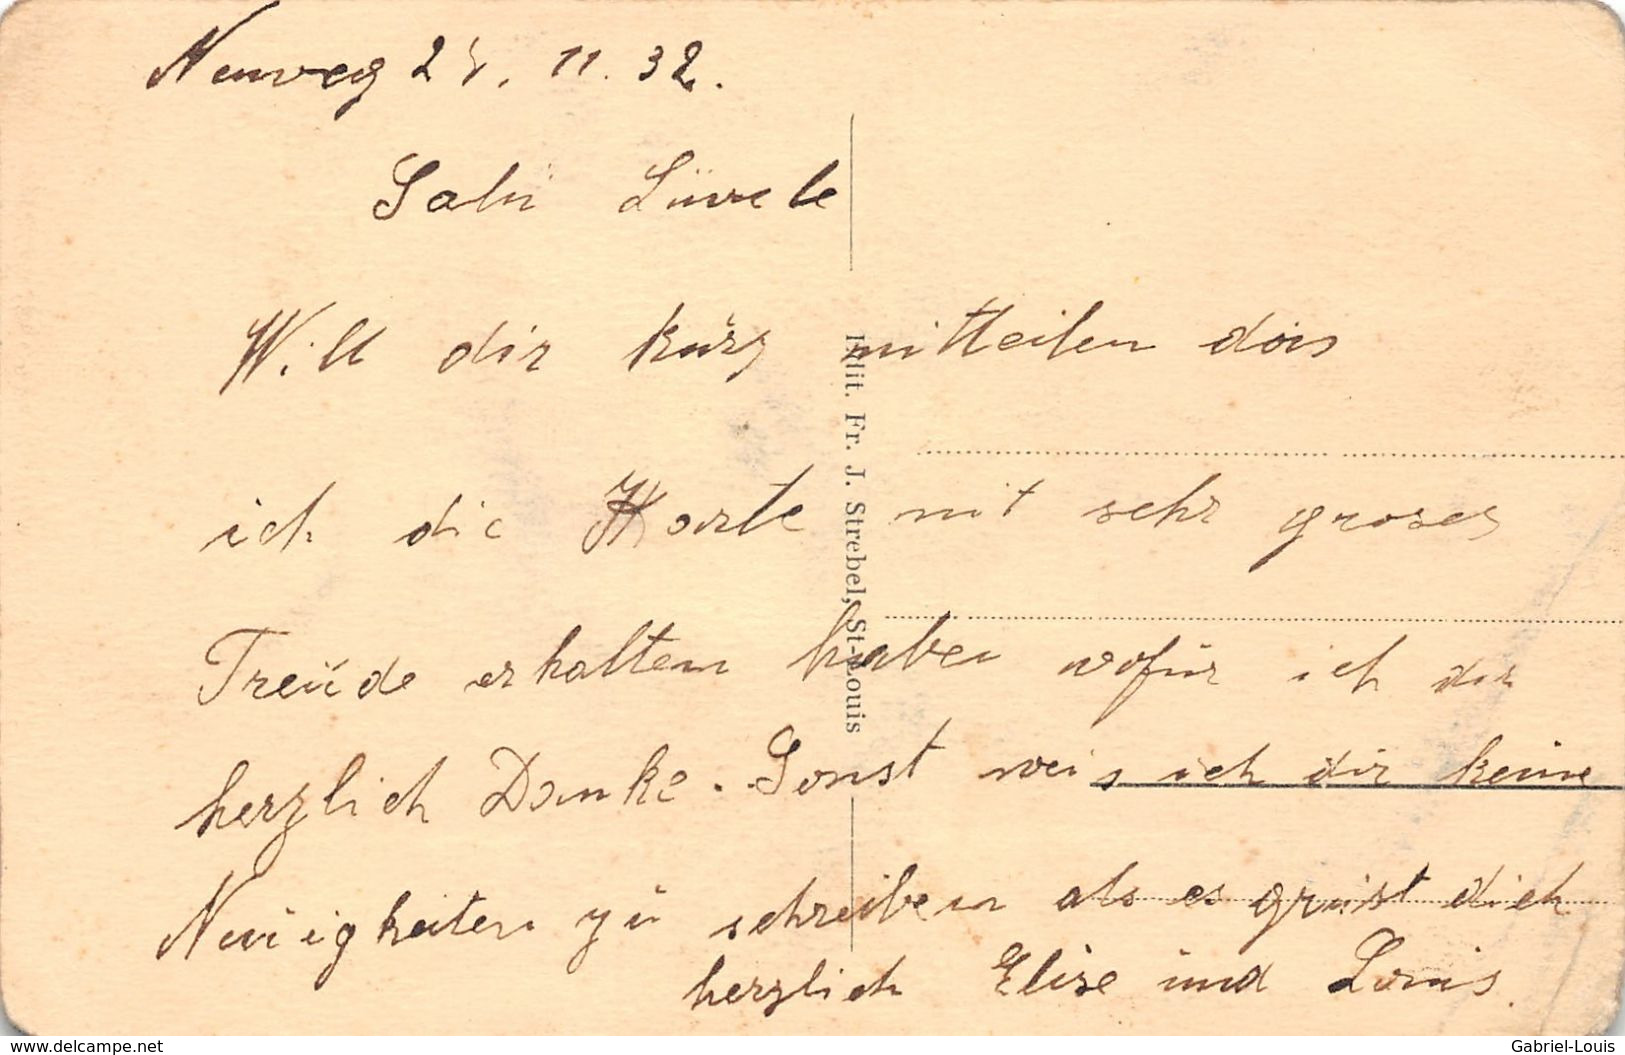 Neuweg 21. 11. 32.
Salü
Will dir kurz mitteilen das
ich die Karte mit sehr groses
Freude erhalten haben wofür ich dir
herzlich Danke. Sonst weis ich dir keine
Neuigkeiten zu schreiben als es grüst dich
herzlich Elise und Louis.
Edit. Fr. J. Strebel, St-Louis
www.delcampe.net
Gabriel-Louis